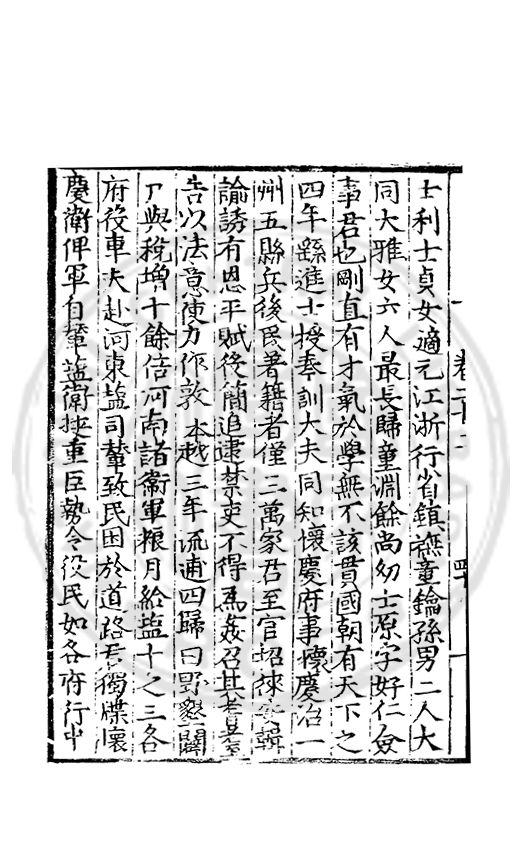 士利士貞女適元江浙行省鎮撫童鑰孫男二人大
同大雅女六人最長歸童淵餘尚幼士原字好仁僉
事君也剛直有才氣於學無不該貫國朝有天下之
四年繇進士授奉訓大夫同知懷慶府事懷慶冶一
州五縣兵後民著籍者僅三萬家君至官招徠安輯
諭誘有恩平賦役簡追逮禁吏不得為姦召其耆
告以法意使力作敦本越三年流逋四歸曰野墾闢
丁與稅增十餘倍河南諸衞軍粮月給盐十之三各
府役車夫赴河東盐司輦致民困於道路君獨牒懷
慶衛俾軍自輦盐衛挾重臣勢令役民如各府行中
卷二十二
四十